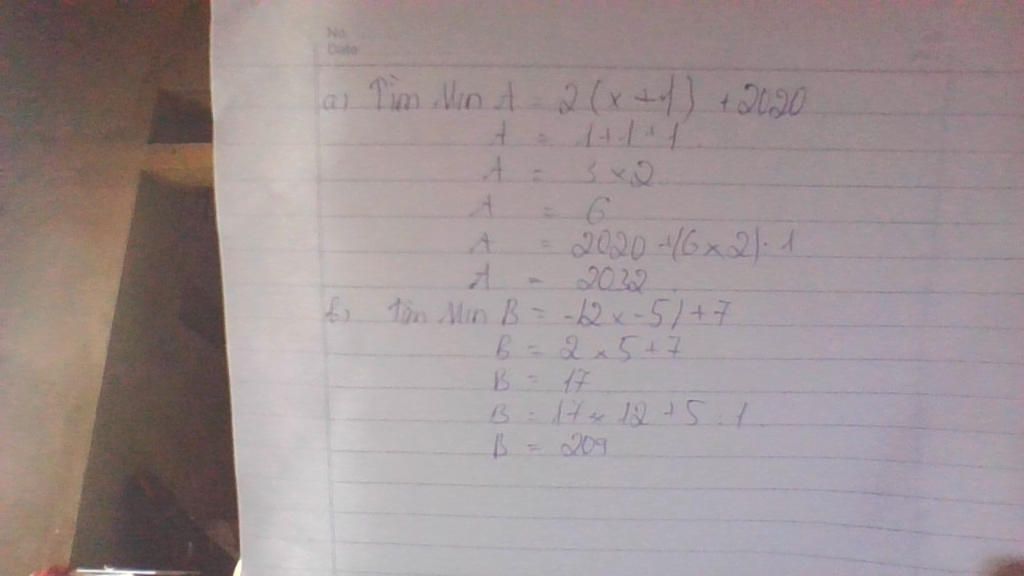 No.
Date
a) Tìm Min A = 2(x+1) + 2020
A = 1+1+1
A = 3×2
A = 6
A = 2020 +(6×2).1
A = 2032.
b) Tìm Min B = -|2x-5|+7
B = 2×5+7
B = 17
B = 17×12+5.1
B = 209